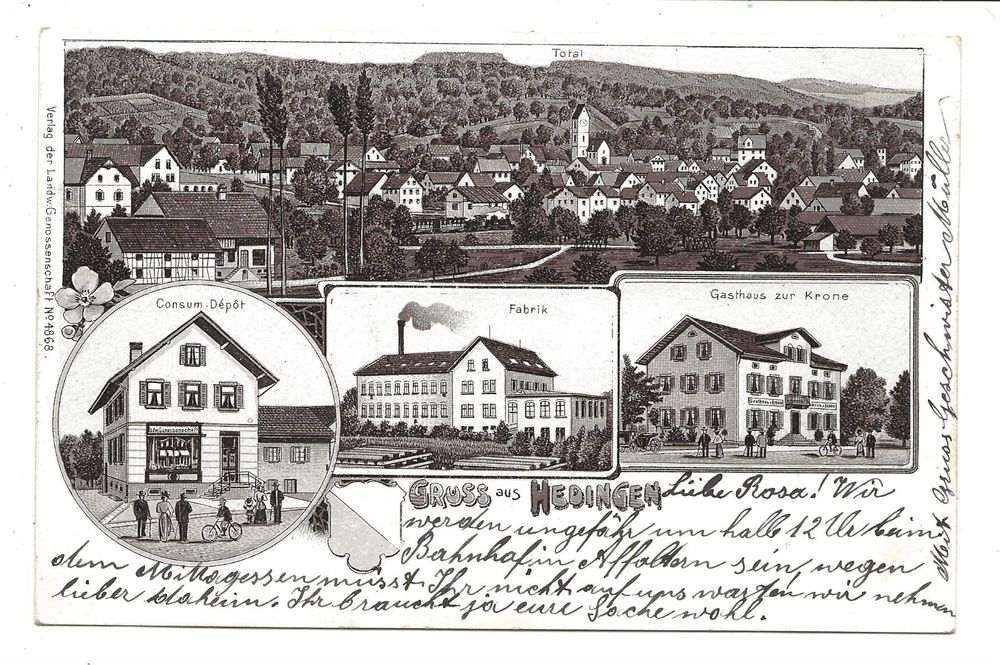 Total
Verlag der Landw. Genossenschaft No 4868.
Consum-Dépôt
Fabrik
Gasthaus zur Krone
GRUSS aus HEDINGEN
Liebe Rosa! Wir
werden ungefähr um halb 12 Ur beim
Bahnhof in Affoltern sein, wegen
dem Mittagessen müsst Ihr nicht auf uns warten wir nehmen
lieber daheim. Ihr braucht ja eure Sache wohl.
Mit Gruss Geschwister Müller